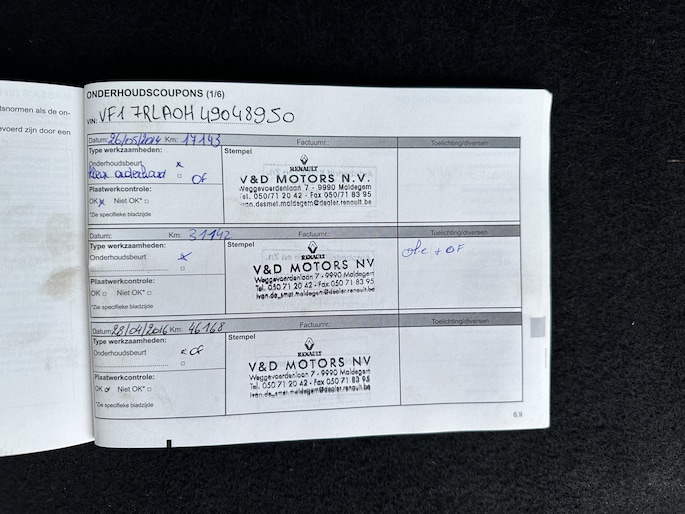 tsnormen als de on-
evoerd zijn door een
ONDERHOUDSCOUPONS (1/6)
VIN: VF17RLA0H49048950
Datum: 26/05/2014 Km: 17143 Factuurnr.: Toelichting/diversen
Type werkzaamheden:
Onderhoudsbeurt x
OF
Plaatwerkcontrole:
OK x Niet OK* □
*Zie specifieke bladzijde
Stempel
RENAULT
V&D MOTORS N.V.
Weggevoerdenlaan 7 - 9990 Maldegem
Tel. 050/71 20 42 - Fax 050/71 83 95
ivan.desmet.maldegem@dealer.renault.be
Datum: Km: 31142 Factuurnr.: Toelichting/diversen
Type werkzaamheden:
Onderhoudsbeurt x
Plaatwerkcontrole:
OK □ Niet OK* □
*Zie specifieke bladzijde
Stempel
RENAULT
V&D MOTORS NV
Weggevoerdenlaan 7 - 9990 Maldegem
Tel. 050 71 20 42 - Fax 050 71 83 95
ivan.de_smet.maldegem@dealer.renault.be
olie + OF
Datum: 28/04/2016 Km: 46168 Factuurnr.: Toelichting/diversen
Type werkzaamheden:
Onderhoudsbeurt x OF
Plaatwerkcontrole:
OK x Niet OK* □
*Zie specifieke bladzijde
Stempel
RENAULT
V&D MOTORS NV
Weggevoerdenlaan 7 - 9990 Maldegem
Tel. 050 71 20 42 - Fax 050 71 83 95
ivan.de_smet.maldegem@dealer.renault.be
6.9